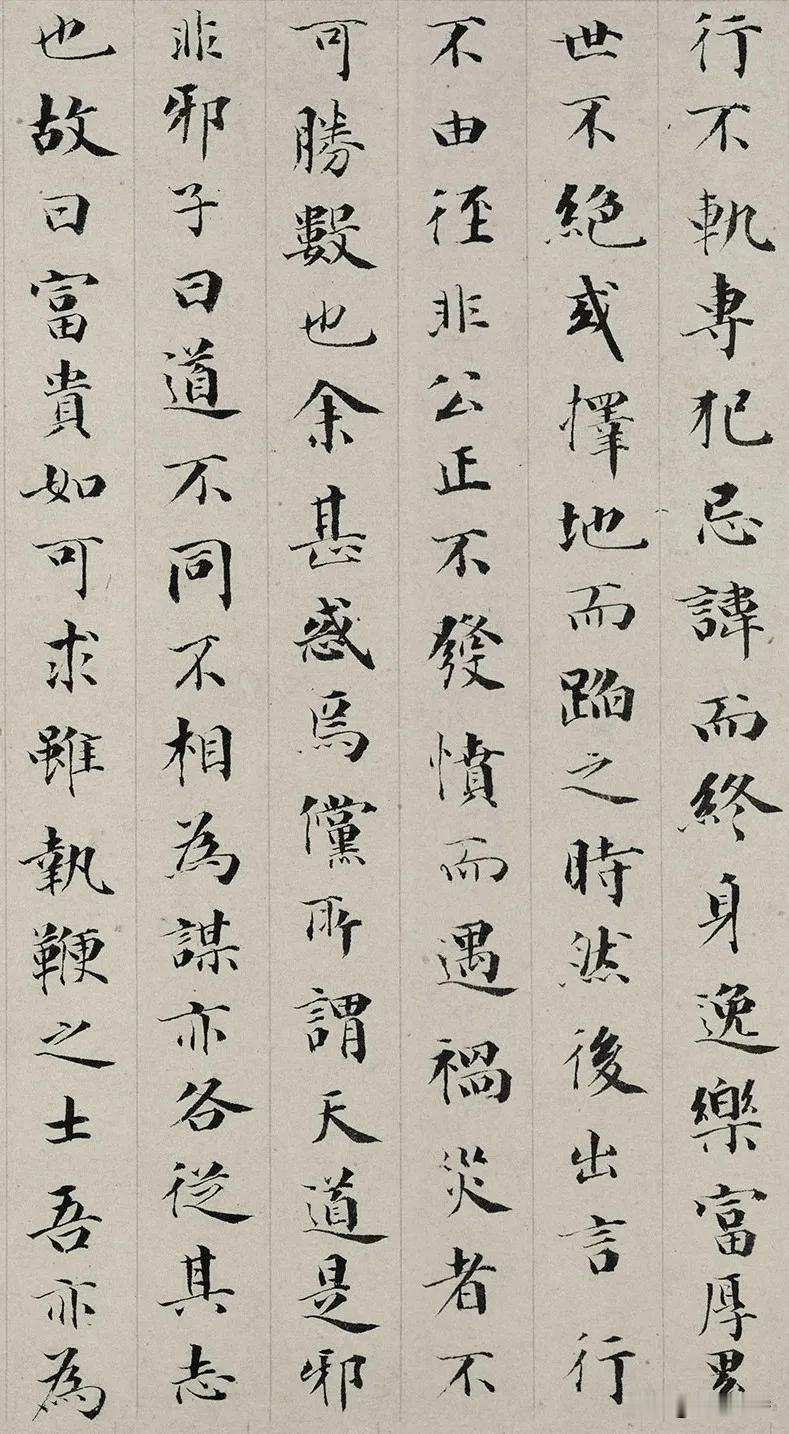 行不軌專犯忌諱而終身逸樂富厚累
世不絕或擇地而蹈之時然後出言行
不由徑非公正不發憤而遇禍災者不
可勝數也余甚惑焉儻所謂天道是邪
非邪子曰道不同不相為謀亦各從其志
也故曰富貴如可求雖執鞭之士吾亦為